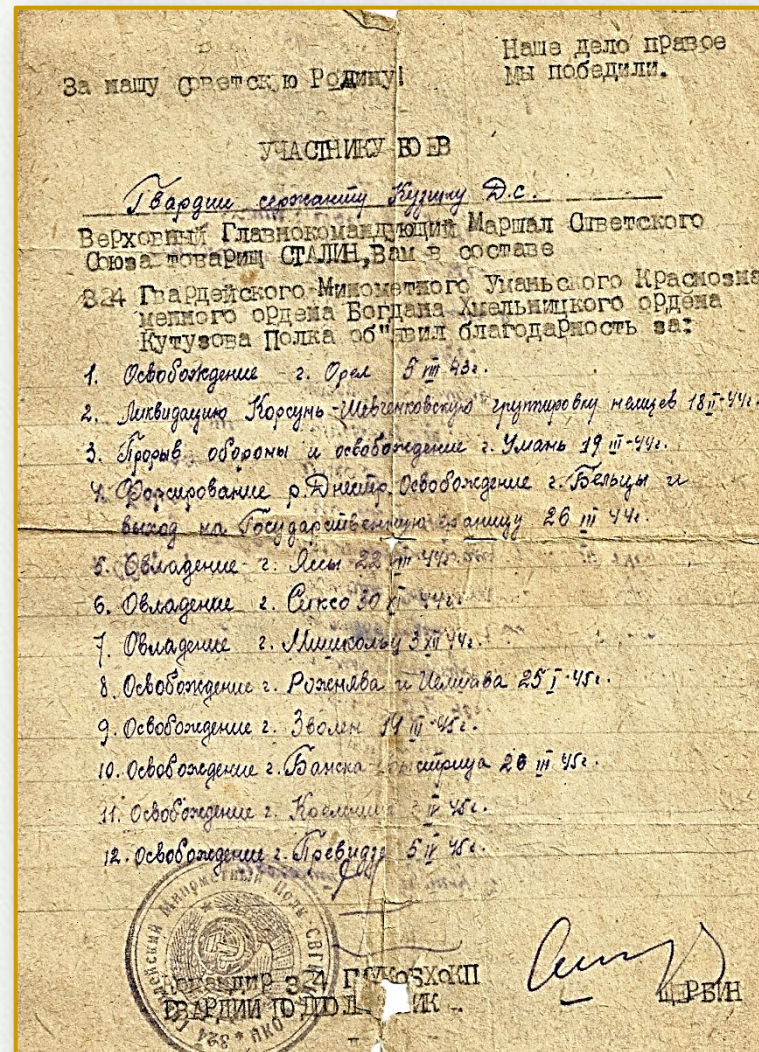 Наше дело правое
За нашу Советскую Родину! Мы победили.
УЧАСТНИКУ БОЕВ
Гвардии сержанту Кузину Д.С.
Верховный Главнокомандующий Маршал Советского
Союза товарищ СТАЛИН, Вам в составе
324 Гвардейского Минометного Уманьского Краснозна
менного ордена Богдана Хмельницкого ордена
Кутузова Полка об"явил благодарность за:
1. Освобождение - г. Орел 5 III 43г.
2. Ликвидацию Корсунь-Шевченковскую группировку немцев 18 II-44г.
3. Прорыв обороны и освобождение г. Умань 19 III-44г.
4. Форсирование р. Днестр. Освобождение г. Бельцы и
выход на Государственную границу 26 III 44г.
5. Овладение - г. Яссы 22 44г.
6. Овладение г. Сиксо 30 XI 44г.
7. Овладение г. Мишкольц 3 XII 44г.
8. Освобождение г. Рожнява и Иелшава 25 I-45г.
9. Освобождение г. Зволен 14 III-45г.
10. Освобождение г. Банска 26 III 45г.
11. Освобождение г. IV 45г.
12. Освобождение г. Превидза 5 IV 45г.
324 Гвардейский Минометный Полк
Командир 324
ГВАРДИИ
ЩЕРБИН